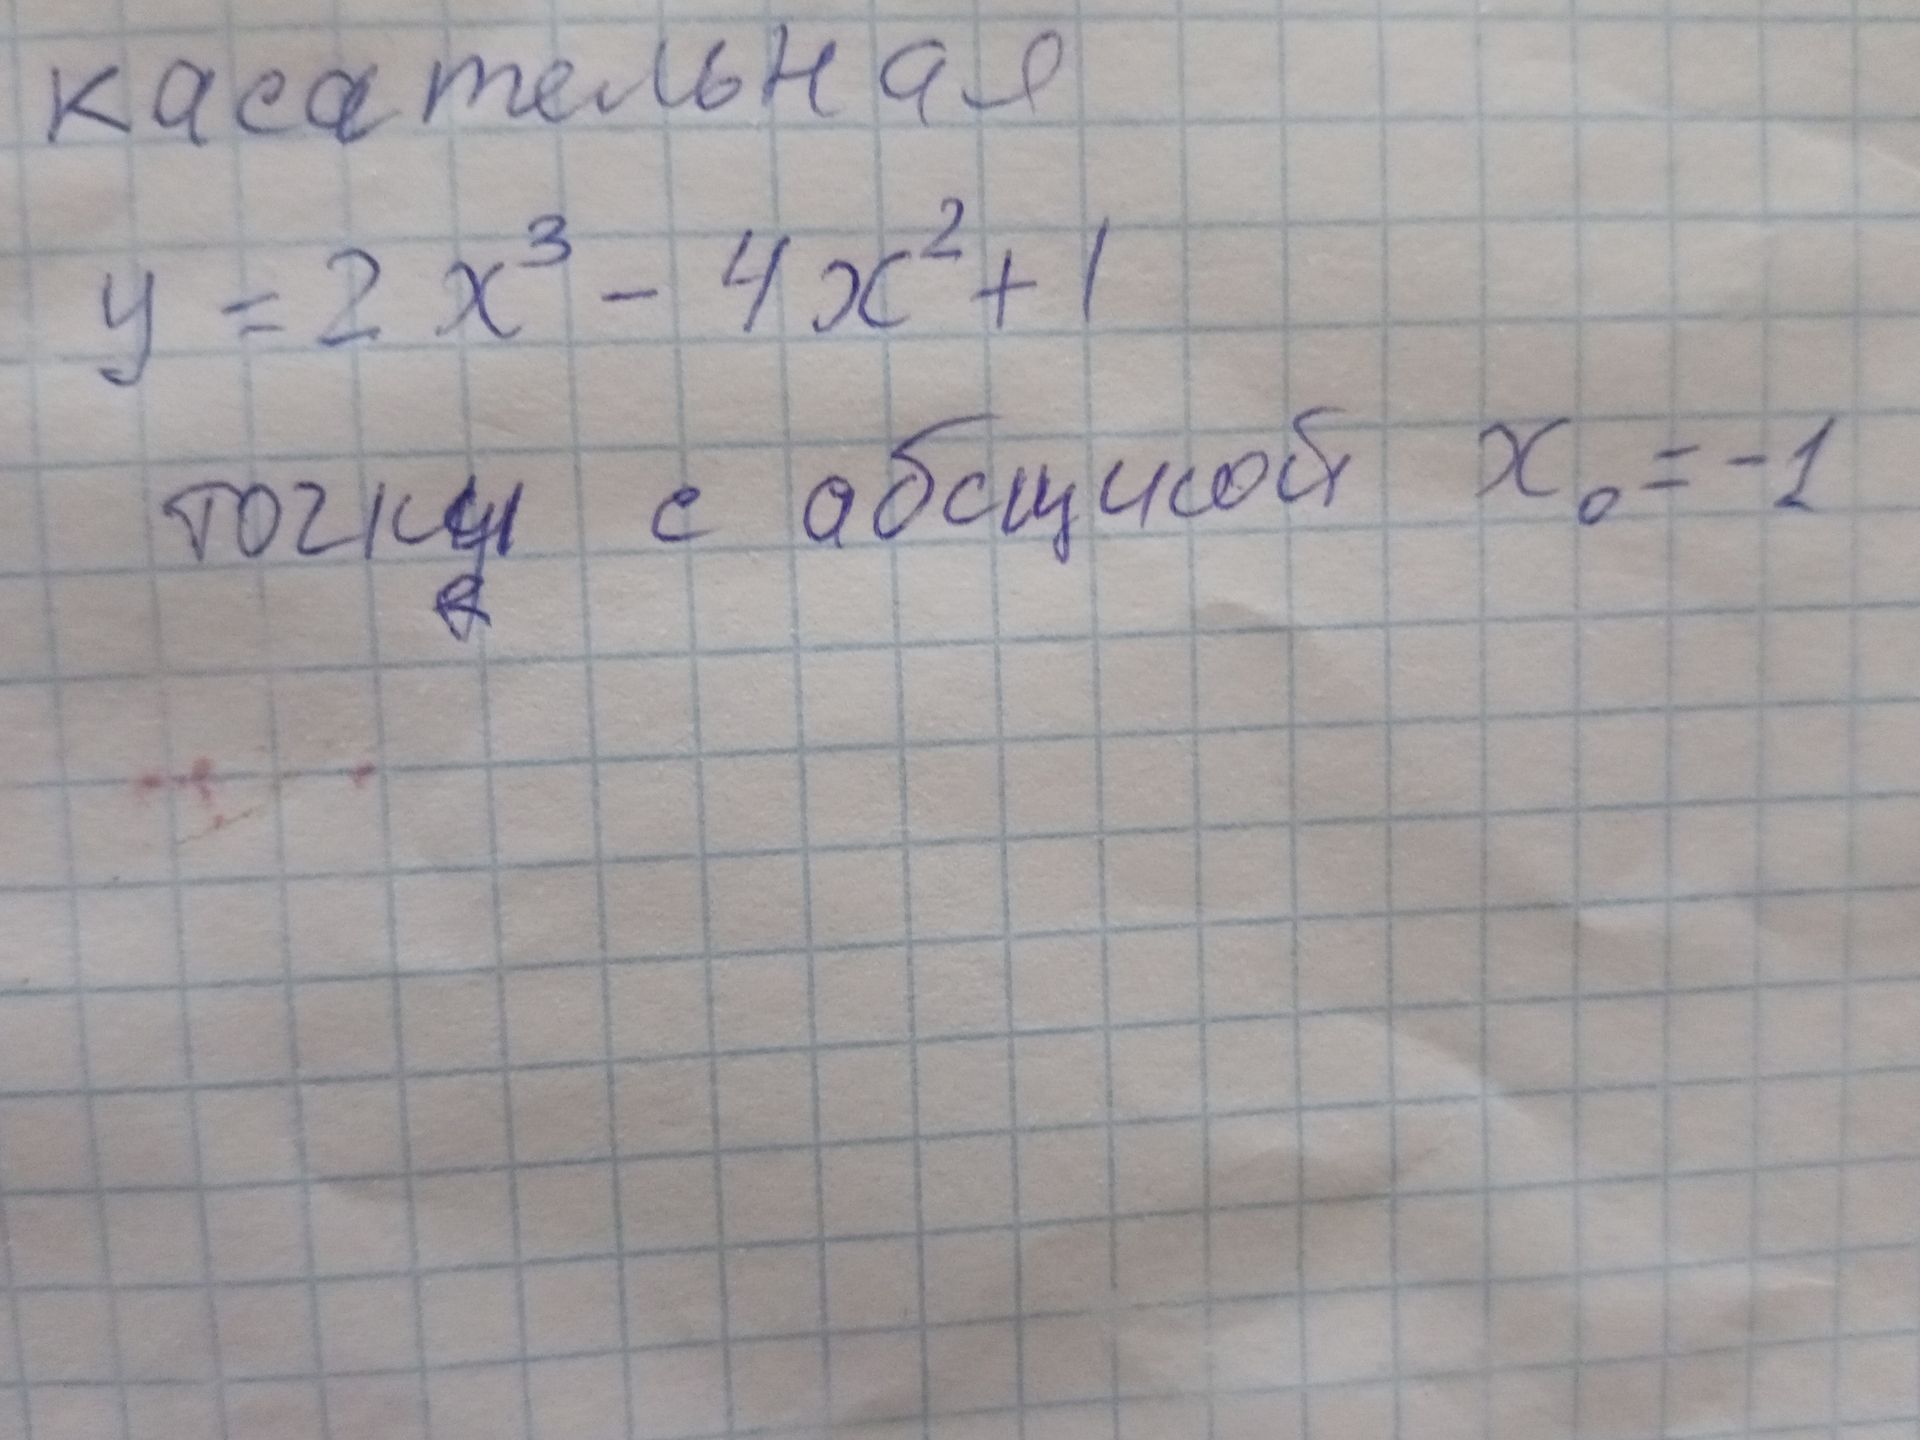 касательная
y = 2x³ - 4x² + 1
с абсциссой x₀ = -1